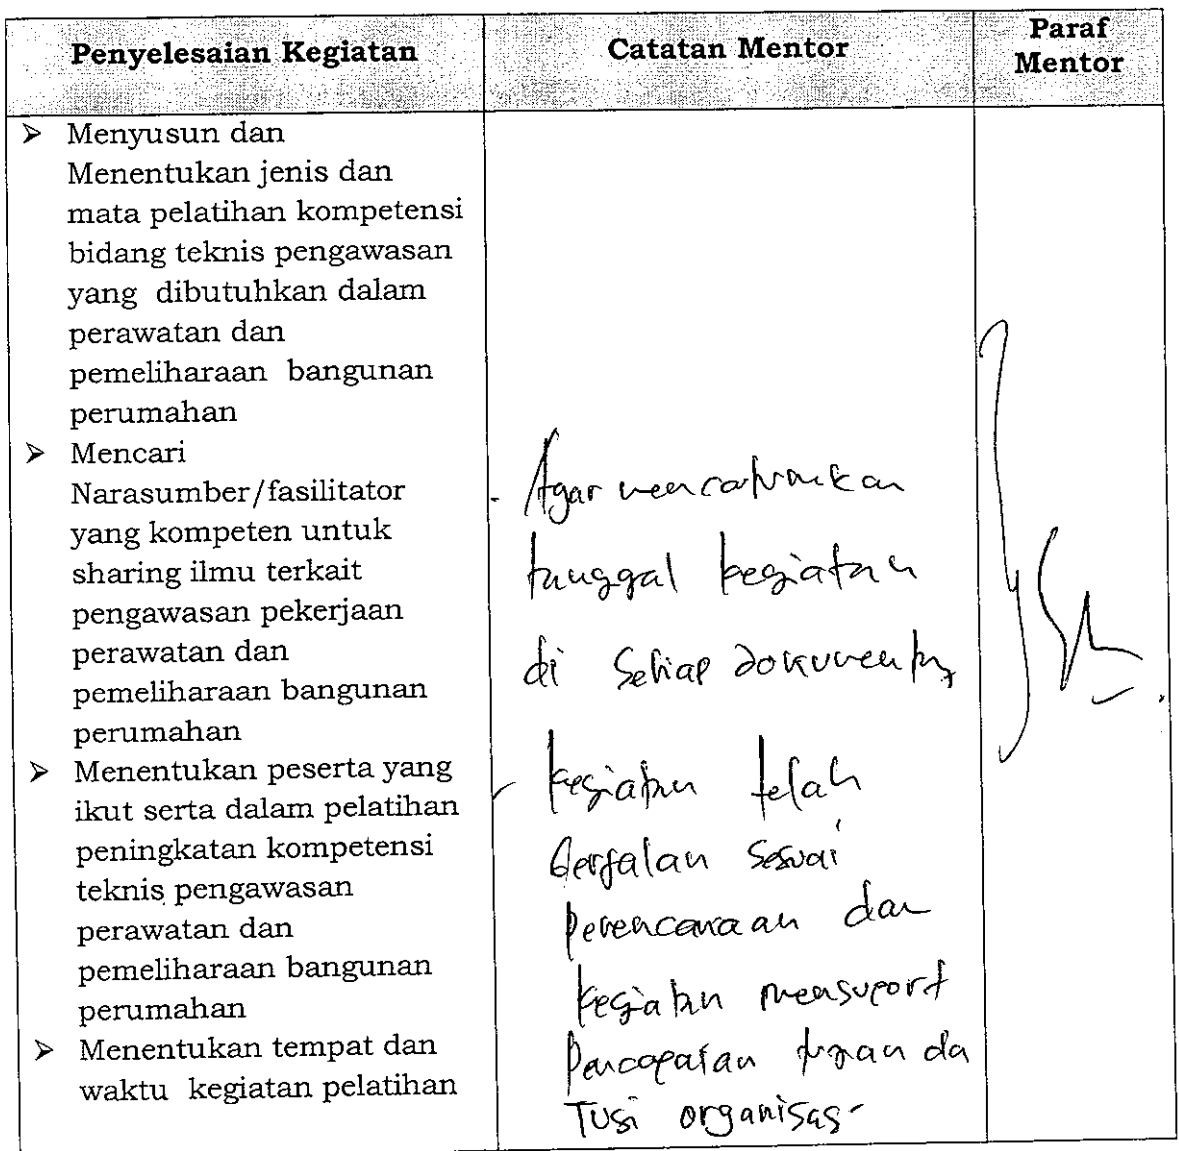 Penyelesaian Kegiatan
Catatan Mentor
Paraf
Mentor
➢ Menyusun dan
Menentukan jenis dan
mata pelatihan kompetensi
bidang teknis pengawasan
yang dibutuhkan dalam
perawatan dan
pemeliharaan bangunan
perumahan
➢ Mencari
Narasumber/fasilitator
yang kompeten untuk
sharing ilmu terkait
pengawasan pekerjaan
perawatan dan
pemeliharaan bangunan
perumahan
➢ Menentukan peserta yang
ikut serta dalam pelatihan
peningkatan kompetensi
teknis pengawasan
perawatan dan
pemeliharaan bangunan
perumahan
➢ Menentukan tempat dan
waktu kegiatan pelatihan
- Agar mencantumkan
tanggal kegiatan
di setiap dokumentasi
- kegiatan telah
berjalan sesuai
perencanaan dan
kegiatan mensuport
pencapaian tujuan da
Tusi organisasi